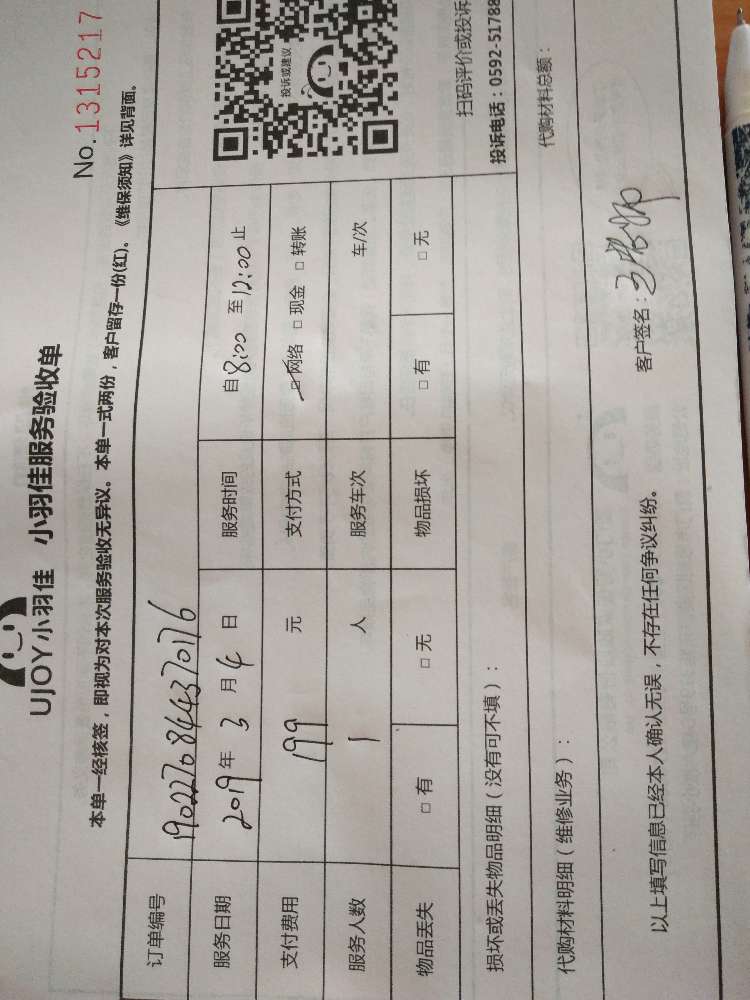 UJOY小羽佳 小羽佳服务验收单
No.1315217
本单一经核签，即视为对本次服务验收无异议。本单一式两份，客户留存一份(红)。《维保须知》详见背面。
订单编号 190227084437017 6
服务日期 2019年 3 月 4 日 服务时间 自8:00 至12:00止
支付费用 199 元 支付方式 □网络 □现金 □转账
服务人数 1 人 服务车次 车/次
物品丢失 □有 □无 物品损坏 □有 □无
投诉或建议
扫码评价或投诉
投诉电话：0592-51788
损坏或丢失物品明细（没有可不填）：
代购材料明细（维修业务）：
代购材料总额：
以上填写信息已经本人确认无误，不存在任何争议纠纷。
客户签名：